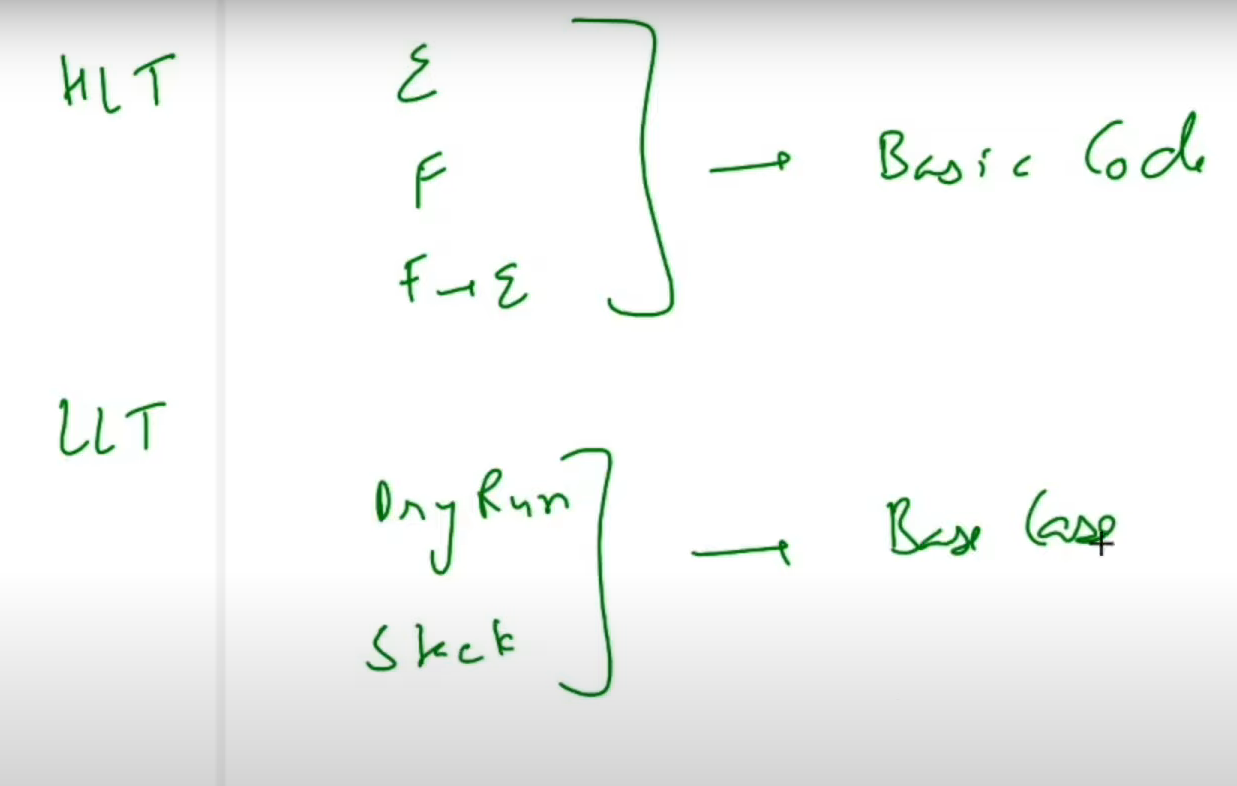 HLT
E
F
F → E
→ Basic Code
LLT
Dry Run
Stack
→ Base Case